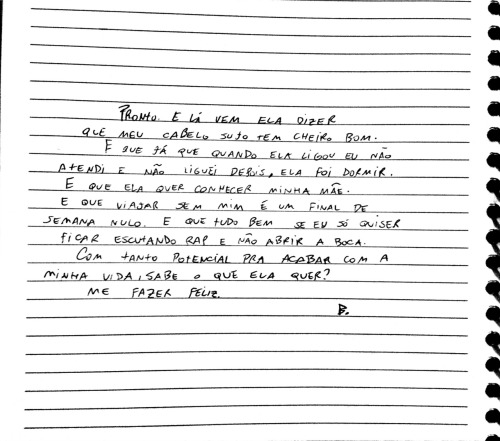 PRONTO. E LÁ VEM ELA DIZER
QUE MEU CABELO SUJO TEM CHEIRO BOM.
E QUE JÁ QUE QUANDO ELA LIGOU EU NÃO
ATENDI E NÃO LIGUEI DEPOIS, ELA FOI DORMIR.
E QUE ELA QUER CONHECER MINHA MÃE.
E QUE VIAJAR SEM MIM É UM FINAL DE
SEMANA NULO. E QUE TUDO BEM SE EU SÓ QUISER
FICAR ESCUTANDO RAP E NÃO ABRIR A BOCA.
COM TANTO POTENCIAL PRA ACABAR COM A
MINHA VIDA, SABE O QUE ELA QUER?
ME FAZER FELIZ.
B.